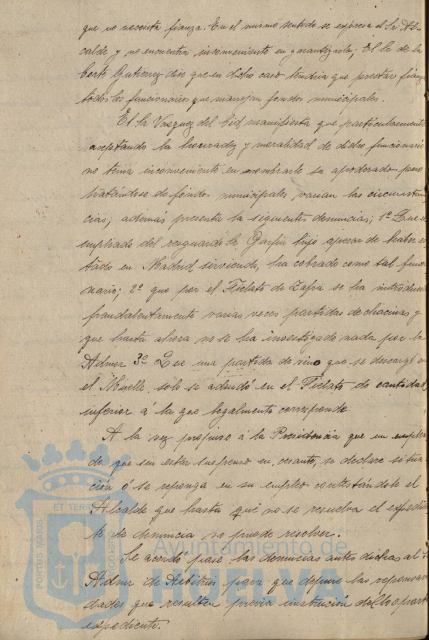 que no necesita fianza. En el mismo sentido se expresa el Sr. Al-
calde y no encuentra inconveniente en garantizarlo; El Sr. de la
Corte Gutierrez dijo que en dicho caso tendria que prestar fianza
todos los funcionarios que manejan fondos municipales.
El Sr Vazquez del Cid manifiesta que particularmente
aceptando la honradez y moralidad de dicho funcionario
no tenia inconveniente en nombrarle su apoderado pero
tratándose de fondos municipales, varian las circunstan-
cias; además presenta la siguientes denuncias; 1ª Que el
empleado del resguardo Sr Garfia hijo apesar de haber es-
tado en Madrid sirviendo, ha cobrado como tal funcio-
nario; 2º que por el Fielato de Zafra se ha introducido
fraudulentamente varias veces partidas de chacinas y
que hasta ahora no se ha investigado nada por la
Admon 3º Que una partida de vino que se descargó en
el Muelle, solo se adeudó en el Fielato de cantidad
inferior á la que legalmente corresponde
A la vez propuso á la Presidencia que un emplea-
do que sin estar suspenso ni cesante, se declare su situa-
ción ó se reponga en su empleo contestándole el
Alcalde que hasta que no se resuelva el expedien-
te de denuncia no puede resolver.
Se acordó pase las denuncias antes dichas al Sr.
Admor de Arbitrios para que depure las responsabi-
dades que resulten previa instrucción del oportuno
expediente.
Ayuntamiento de
HUELVA
PORTUS MARIS
ET TERRAE